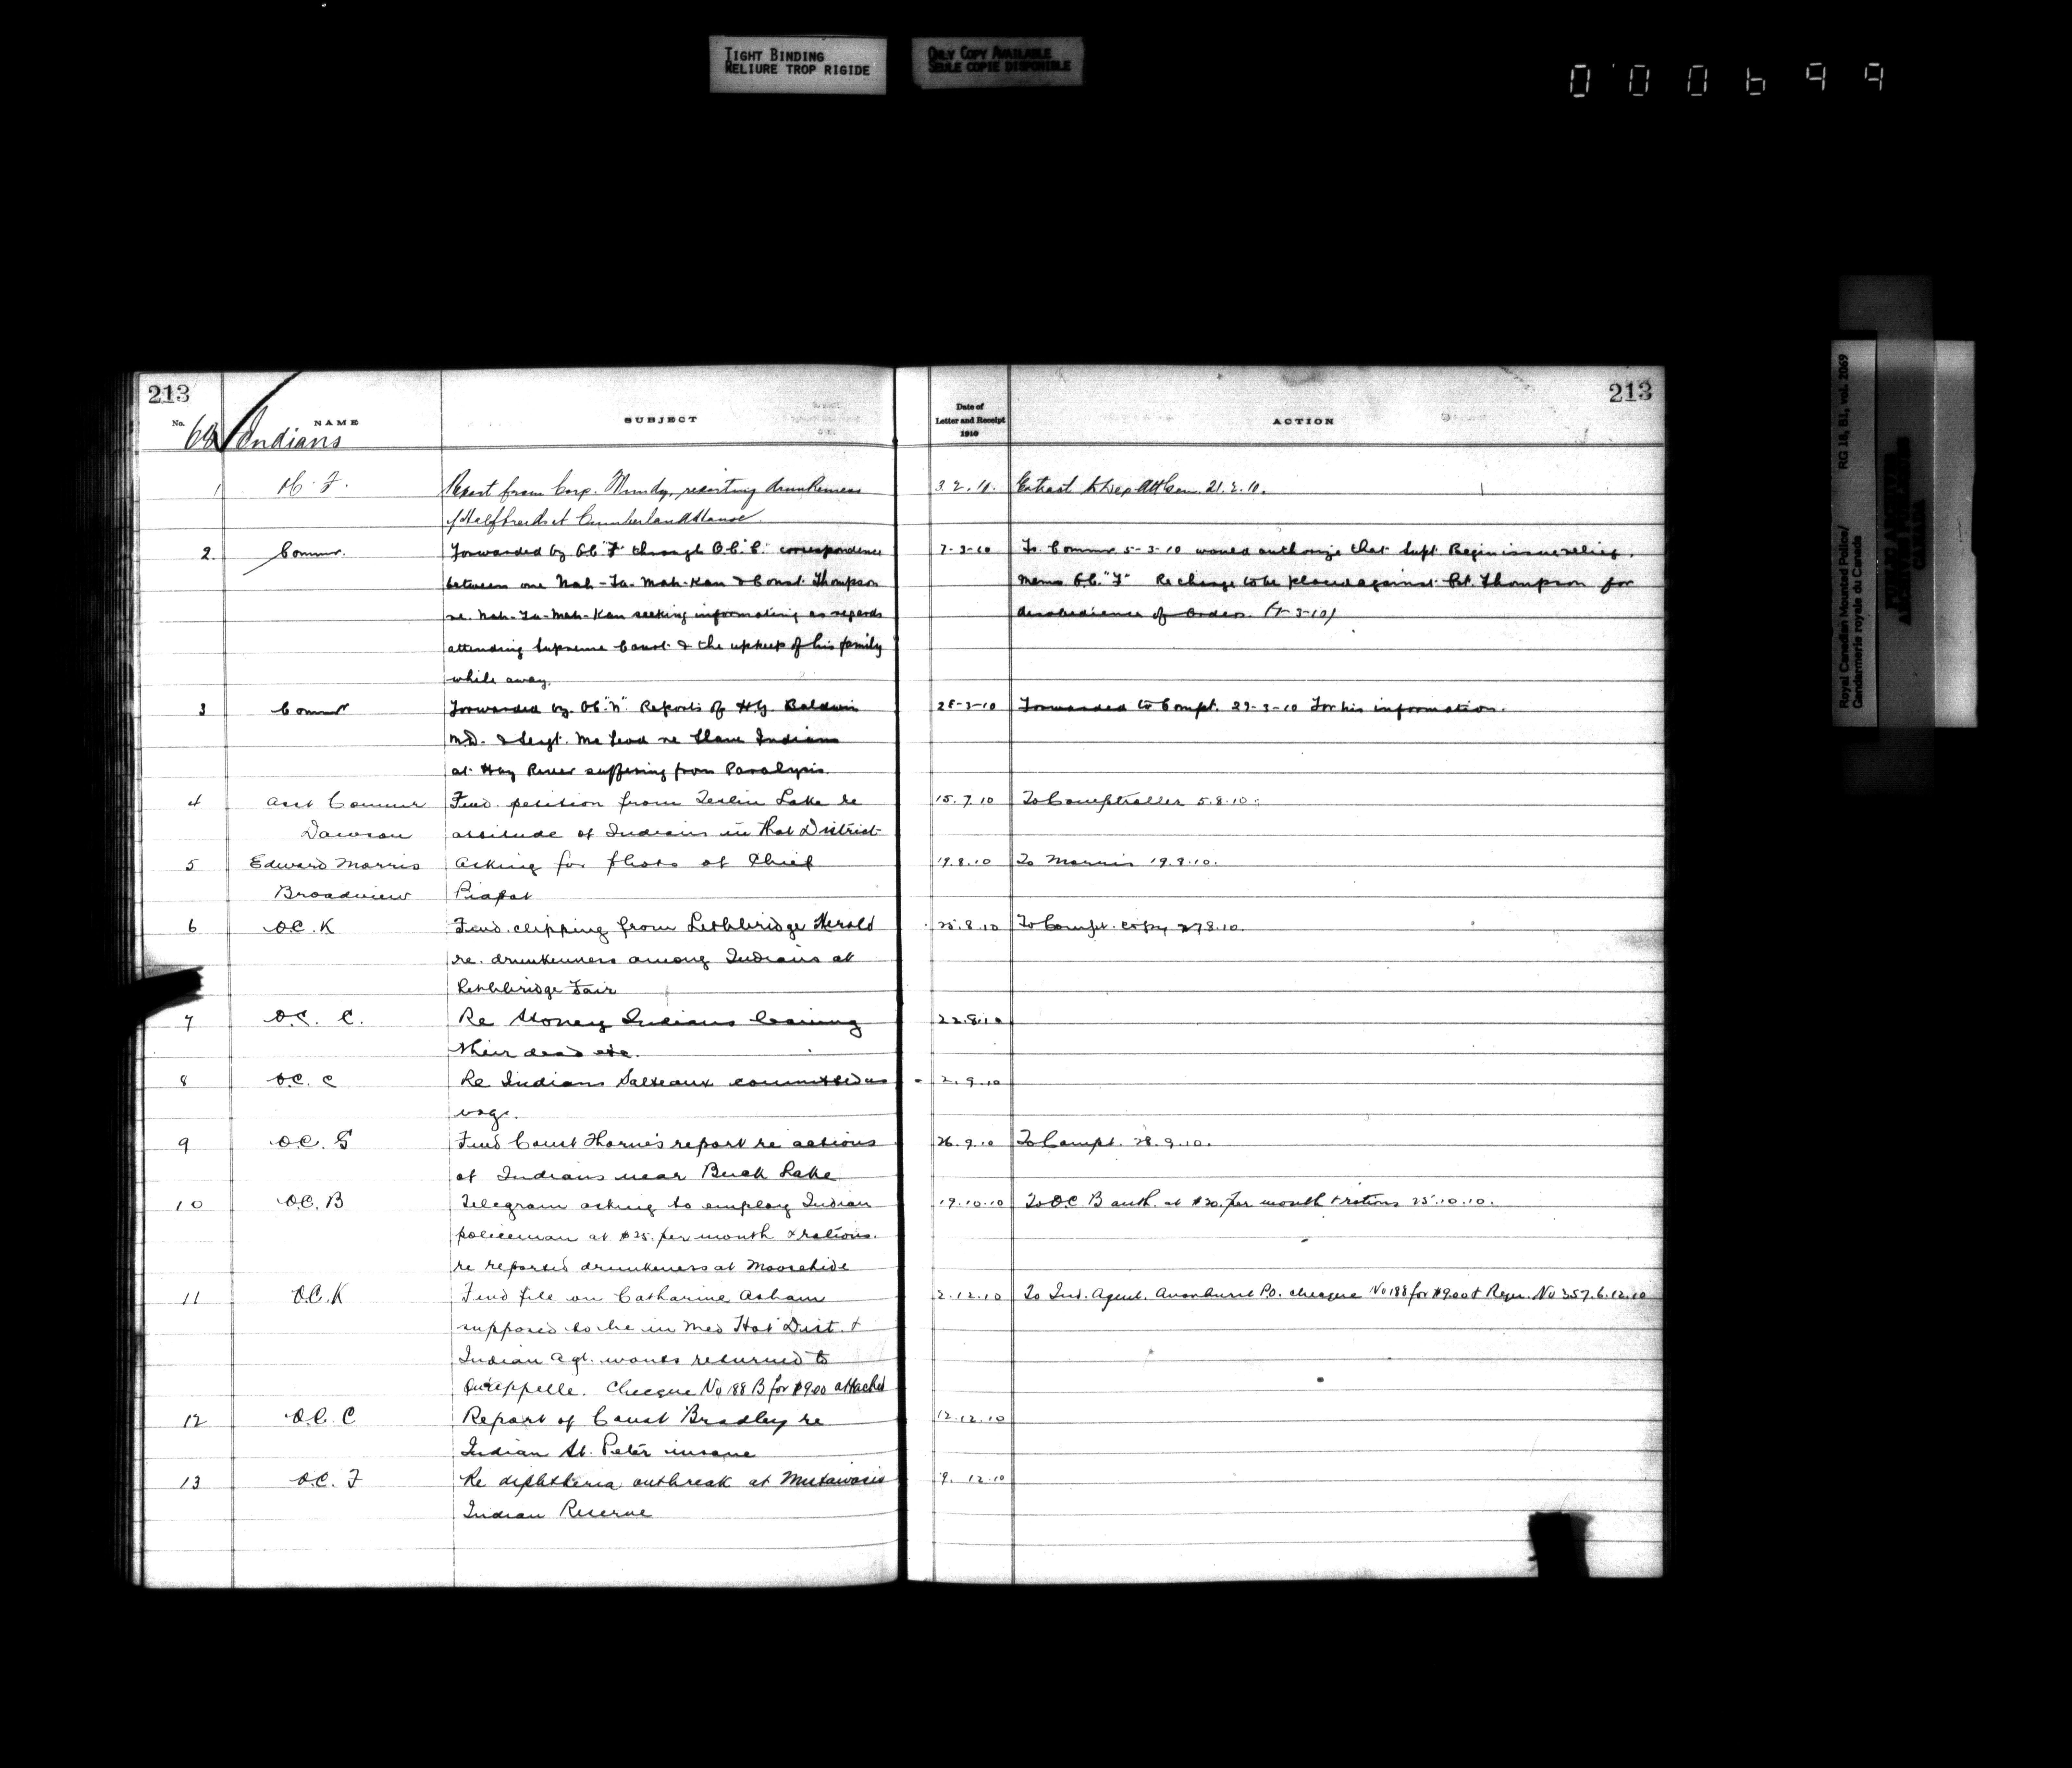 TIGHT BINDING
RELIURE TROP RIGIDE
ONLY COPY AVAILABLE
SEULE COPIE DISPONIBLE
000699
Royal Canadian Mounted Police/ RG 18, B1, vol. 2069
Gendarmerie royale du Canada
PUBLIC ARCHIVES
ARCHIVES PUBLIQUES
CANADA
213 213
No. NAME SUBJECT Date of Letter and Receipt 1910 ACTION
Indians
1 Report from Corp. Mundy, reporting drunkenness 3.2.10. Extract to Dep. Att Gen. 21.2.10.
of Halfbreeds at Cumberland House.
2. Commr. Forwarded by O.C. "F" through O.C. "C" correspondence 7-3-10 To Commr 5-3-10 would authorize that Supt. Begin issue relief.
between one Nah-Ta-Mah-Kan & Const. Thompson Memo O.C. "F" Re charge to be placed against Cst. Thompson for
re. Nah-Ta-Mah-Kan seeking information as regards disobedience of Orders.
attending Supreme Court & the upkeep of his family
while away.
3 Commr Forwarded by O.C. "N". Reports of H.G. Baldwin 28-3-10 Forwarded to Compt. 29-3-10 For his information.
M.D. & Sergt. McLeod re Slave Indians
at Hay River suffering from Paralysis.
4 Asst Commr Fwd. petition from Teslin Lake re 15.7.10 To Comptroller 5.8.10.
Dawson attitude of Indians in that District
5 Edward Morris Asking for photo of Chief 19.8.10 To Morris 19.8.10.
Broadview Piapot
6 O.C. K Fwd. clipping from Lethbridge Herald 25.8.10 To Compt. copy 27.8.10.
re. drunkenness among Indians at
Lethbridge Fair
7 O.C. C. Re Stoney Indians leaving 22.8.10
their dead etc.
8 O.C. C Re Indians Salteaux committed as 2.9.10
vags.
9 O.C. G Fwd Const Thorne's report re actions 26.9.10 To Compt. 28.9.10.
of Indians near Buck Lake
10 O.C. B Telegram asking to employ Indian 19.10.10 To O.C B auth. at $20. per month & rations 25.10.10.
policeman at $25. per month & rations.
re reported drunkeness at Moosehide
11 O.C. K Fwd file on Catharine Asham 2.12.10 To Ind. Agent. Avonhurst P.O. cheque No 188 for $9.00 & Regn. No 357. 6.12.10
supposed to be in Med Hat Dist. &
Indian Agt. wants returned to
Qu'appelle. Cheque No 188 B for $9.00 attached
12 O.C. C Report of Const Bradley re 12.12.10
Indian St. Peter insane
13 O.C. F Re diphtheria outbreak at Mistawasis 9.12.10
Indian Reserve